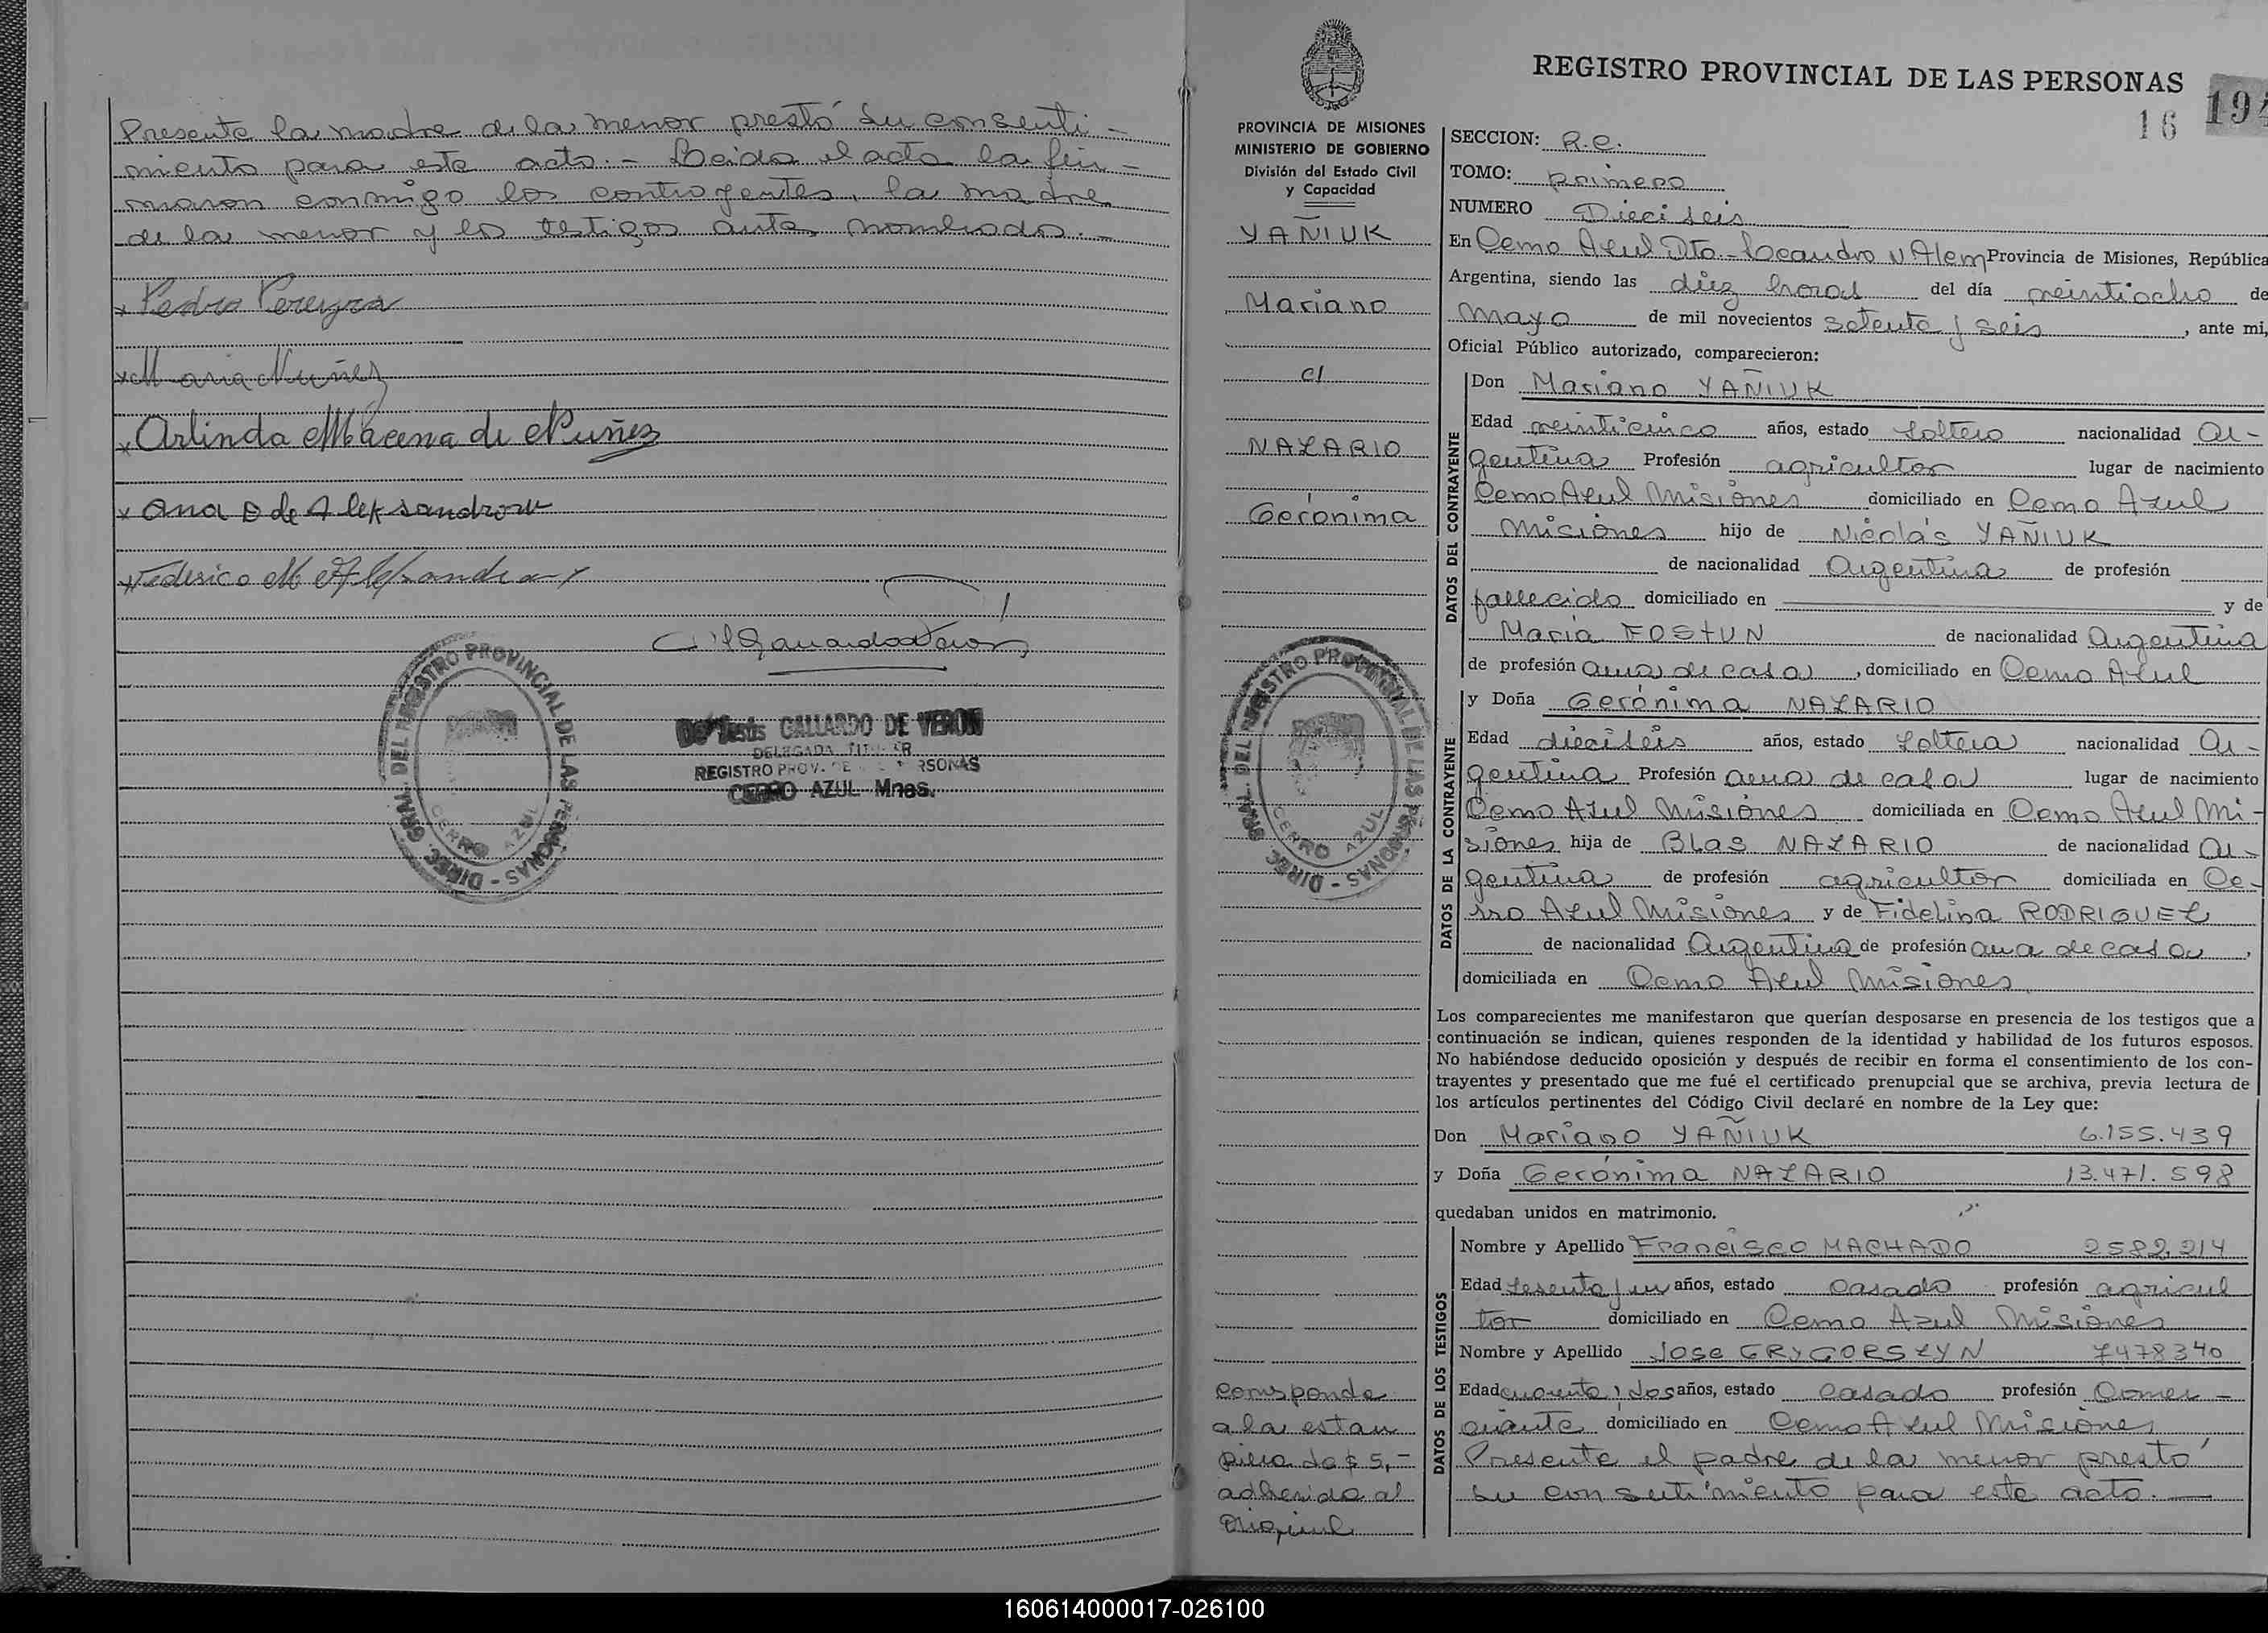 Presente la madre de la menor prestó su consenti-
miento para este acto.- Leida el acta la fir-
maron conmigo los contrayentes, la madre
de la menor y los testigos antes nombrados.-
x Pedro Pereyra
x Maria Nuñez
x Arlinda Mácena de Nuñez
x Ana D de Aleksandrow
x Federico M
DIREC. GRAL. DEL REGISTRO PROVINCIAL DE LAS PERSONAS -
CERRO AZUL
GALLARDO DE VERON
DELEGADA TITULAR
REGISTRO PROV. DE LAS PERSONAS
CERRO AZUL - Mnes.
REGISTRO PROVINCIAL DE LAS PERSONAS
16
194
PROVINCIA DE MISIONES
MINISTERIO DE GOBIERNO
División del Estado Civil
y Capacidad
YAÑIUK
Mariano
c/
NAZARIO
Gerónima
DIREC. GRAL. DEL REGISTRO PROVINCIAL DE LAS PERSONAS -
CERRO AZUL
corresponde
a la estam
pilla de $ 5,-
adherida al
Original
SECCION: R.C.
TOMO: primero
NUMERO Dieciseis
En Cerro Azul Dto. Leandro N Alem Provincia de Misiones, República
Argentina, siendo las diez horas del día veintiocho de
Mayo de mil novecientos setenta y seis, ante mi,
Oficial Público autorizado, comparecieron:
DATOS DEL CONTRAYENTE
Don Mariano YAÑIUK
Edad veinticinco años, estado soltero nacionalidad Ar-
gentina Profesión agricultor lugar de nacimiento
Cerro Azul Misiones domiciliado en Cerro Azul
Misiones hijo de Nicolás YAÑIUK
de nacionalidad Argentina de profesión
fallecido domiciliado en y de
María FOSTUN de nacionalidad Argentina
de profesión ama de casa, domiciliado en Cerro Azul
DATOS DE LA CONTRAYENTE
y Doña Gerónima NAZARIO
Edad dieciseis años, estado soltera nacionalidad Ar-
gentina Profesión ama de casa lugar de nacimiento
Cerro Azul Misiones domiciliada en Cerro Azul Mi-
siones hija de Blas NAZARIO de nacionalidad Ar-
gentina de profesión agricultor domiciliada en Ce-
rro Azul Misiones y de Fidelina RODRIGUEZ
de nacionalidad Argentina de profesión ama de casa,
domiciliada en Cerro Azul Misiones
Los comparecientes me manifestaron que querían desposarse en presencia de los testigos que a
continuación se indican, quienes responden de la identidad y habilidad de los futuros esposos.
No habiéndose deducido oposición y después de recibir en forma el consentimiento de los con-
trayentes y presentado que me fué el certificado prenupcial que se archiva, previa lectura de
los artículos pertinentes del Código Civil declaré en nombre de la Ley que:
Don Mariano YAÑIUK 6.155.439
y Doña Gerónima NAZARIO 13.471.598
quedaban unidos en matrimonio.
DATOS DE LOS TESTIGOS
Nombre y Apellido Francisco MACHADO 2582.214
Edad sesenta y un años, estado casado profesión agricul
tor domiciliado en Cerro Azul Misiones
Nombre y Apellido Jose GRYGORSZYN 7478340
Edad cuarenta y dos años, estado casado profesión Comer-
ciante domiciliado en Cerro Azul Misiones
Presente el padre de la menor prestó
su consentimiento para este acto.-
160614000017-026100